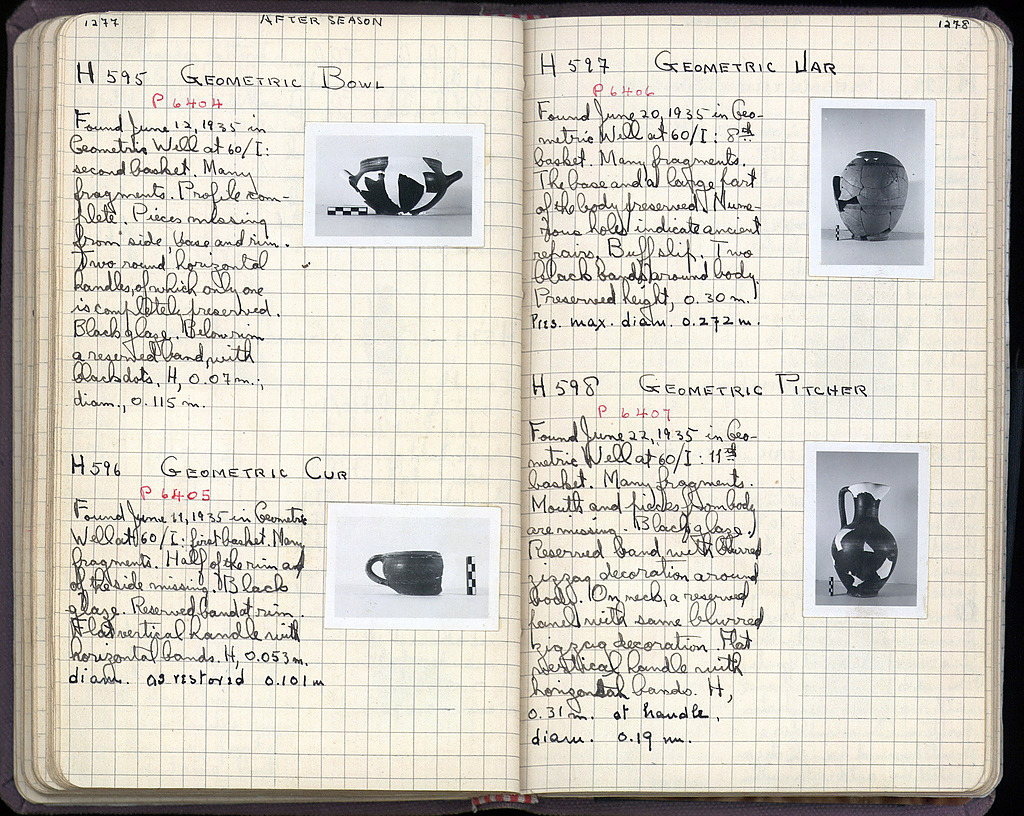 1277
AFTER SEASON
H 595 GEOMETRIC BOWL
P 6404
Found June 12, 1935 in
Geometric Well at 60/I:
second basket. Many
fragments. Profile com-
plete. Pieces missing
from side, base and rim.
Two round horizontal
handles, of which only one
is completely preserved.
Black glaze. Below rim
a reserved band, with
black dots. H, 0.07 m.;
diam., 0.115 m.
H 596 GEOMETRIC CUP
P 6405
Found June 11, 1935 in Geometric
Well at 60/I: first basket. Many
fragments. Half of the rim and
of the side missing. Black
glaze. Reserved band at rim.
Flat vertical handle with
horizontal bands. H, 0.053 m.
diam. as restored 0.101 m
1278
H 597 GEOMETRIC JAR
P 6406
Found June 20, 1935 in Geo-
metric Well at 60/I: 8th
basket. Many fragments.
The base and a large part
of the body preserved. Nume-
rous holes indicate ancient
repairs. Buff slip. Two
black bands around body.
Preserved height, 0.30 m.
Pres. max. diam. 0.272 m.
H 598 GEOMETRIC PITCHER
P 6407
Found June 22, 1935 in Geo-
metric Well at 60/I: 11th
basket. Many fragments.
Mouth and pieces from body
are missing. Black glaze.
Reserved band with blurred
zigzag decoration around
body. On neck, a reserved
panel with same blurred
zigzag decoration. Flat
vertical handle with
horizontal bands. H,
0.31 m. at handle.
diam. 0.19 m.